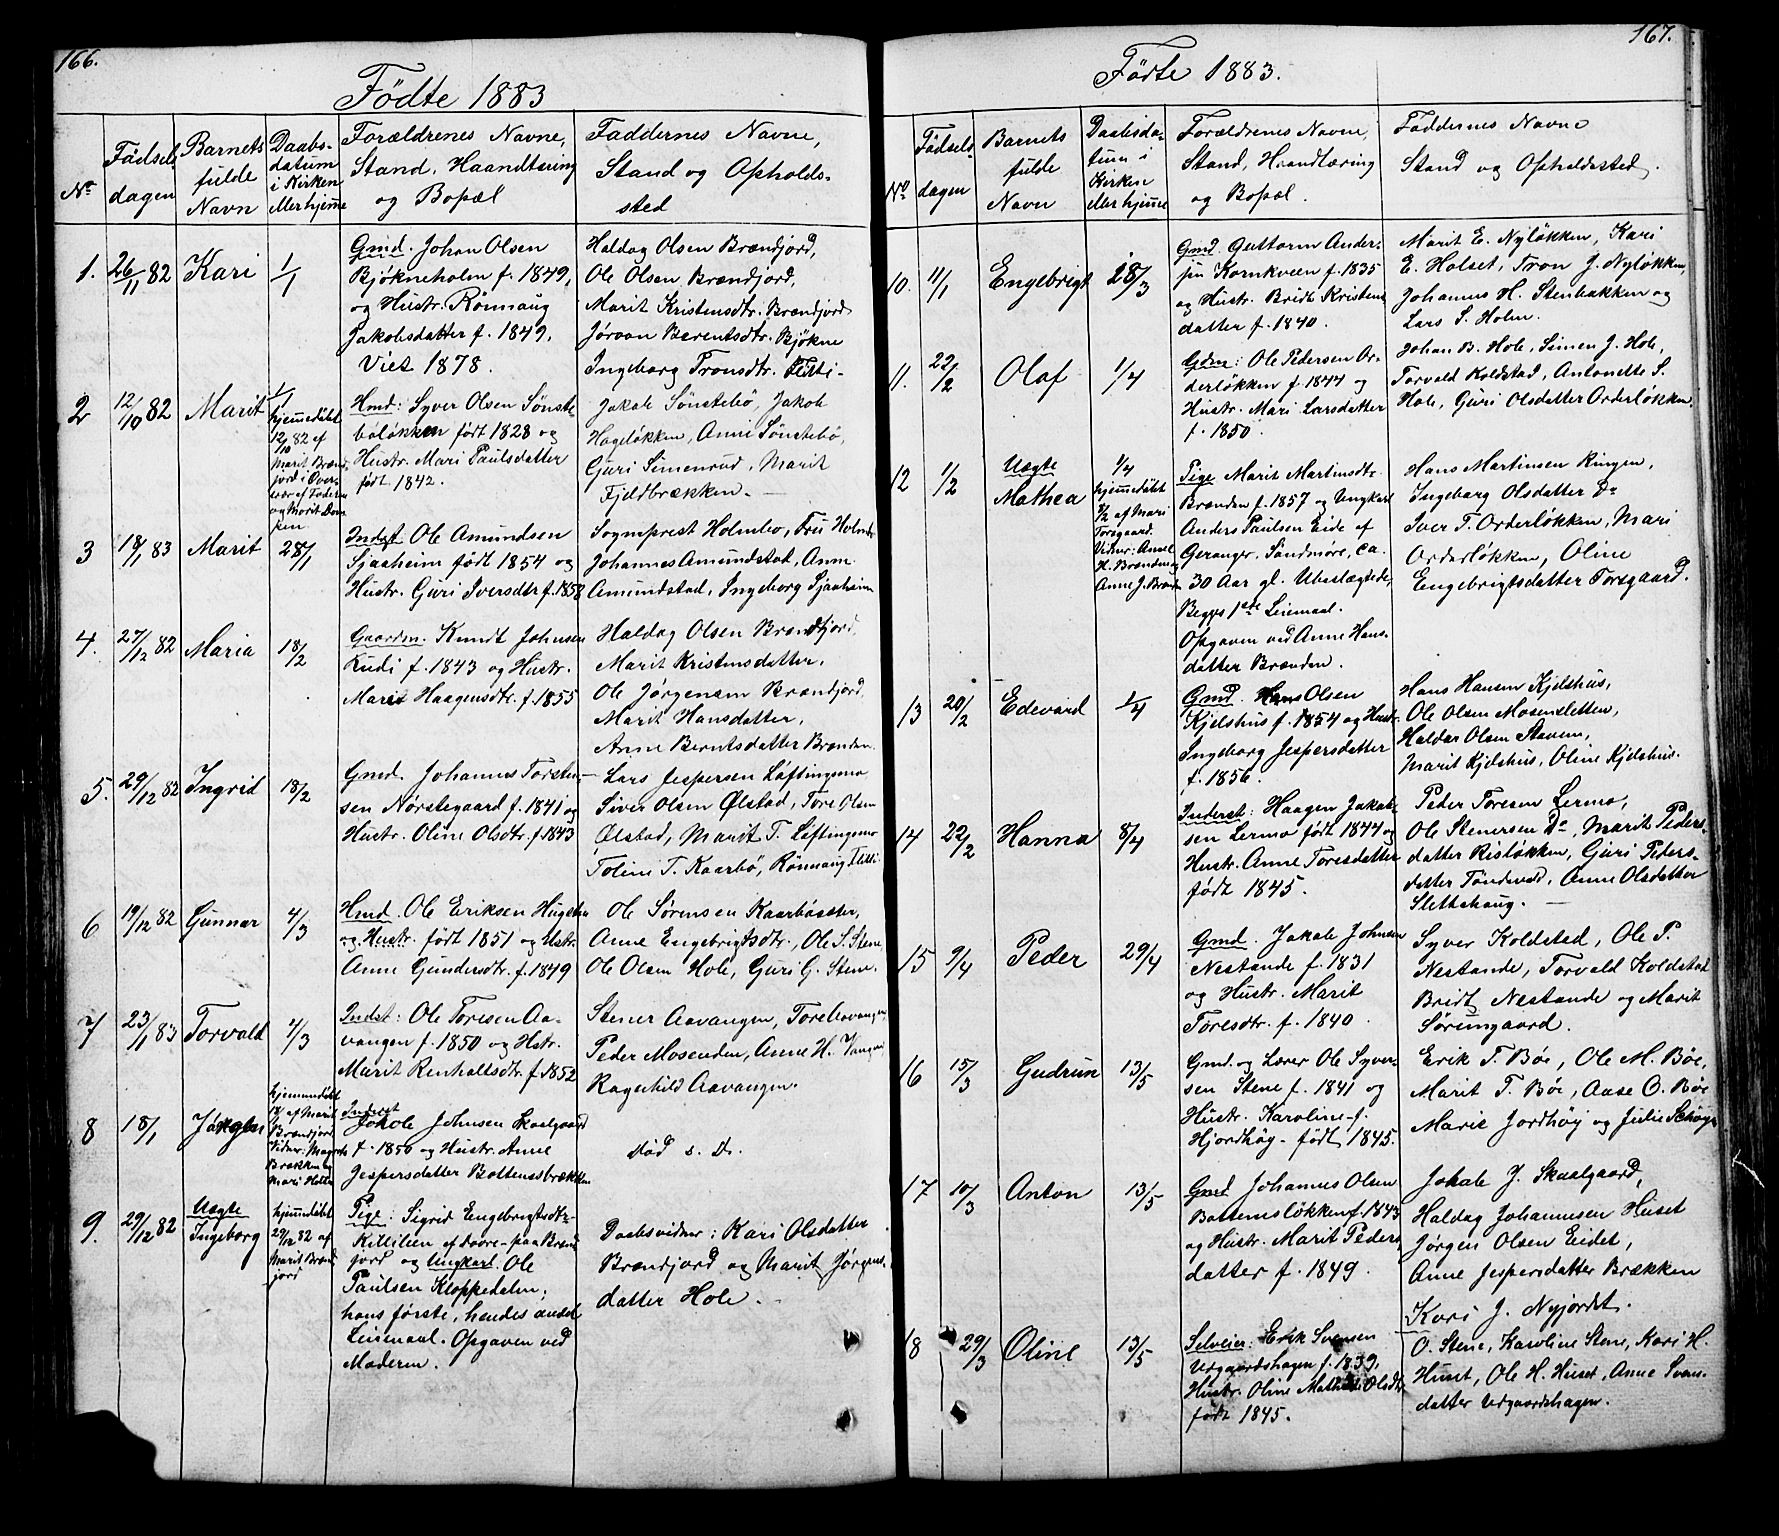 166.
Födte 1883
No
Fødsels
dagen
Barnets
fulde
Navn
Daabs-
datum
i Kirken
ell. hjemme
Forældrenes Navne,
Stand, Haandtering
og Bopæl
Faddernes Navne,
Stand og Opholds-
sted
1.
26/11 82
Kari
1/1
Gmd. Johan Olsen
Bjökneholm f. 1849,
og Hustr. Rönnaug
Jakobsdatter f. 1849.
Viet 1878.
Haldog Olsen Brændjord,
Ole Olsen Brændjord,
Marit Kristensdtr. Brændjord
Jørvan Berentsdtr. Bjökne
Ingeborg Tronsdtr. Flitti-
2
12/10 82
Marit
1/1
hjemmedöbt
12/10 82 af
Marit Brænd-
jord i Over-
vær af Faderen
og Marit
Hmd: Syver Olsen Sønste-
böløkken født 1828 og
Hustr. Mari Paulsdatter
født 1842.
Jakob Sönstebö, Jakob
Hageløkken, Anni Sönstebö,
Guri Simenrud, Marit
Fjeldbrækken. —
3
18/1 83
Marit
28/1
Indst Ole Amundsen
Sjaaheim født 1854 og
Hustr. Guri Iversdtr f. 1858
Sogneprest Holmbo, Fru Holmbo
Johannes Amundstad, Anne
Amundstad, Ingeborg Sjaaheim
4.
27/12 82
Maria
18/2
Gaardm. Knudt Johnsen
Rudi f. 1843 og Hustr.
Marit Haagensdtr. f. 1855
Haldog Olsen Brændjord,
Marit Kristensdatter,
Ole Jörgensen Brændjord,
Marit Hansdatter,
Anne Berntsdatter Brænden.
5.
29/12 82
Ingrid
18/2
Gmd. Johannes Torsten-
sen Nörstegaard f. 1841 og
Hustr. Oline Olsdtr. f. 1843
Lars Jespersen Löftingsmo
Siver Olsen Ölstad, Tore Olsen
Ölstad, Marit T. Löftingsmo
Toline T. Kaarbö, Rönnaug Flitti.
6
19/12 82
Gunnar
4/3
Hmd. Ole Eriksen
og Hustr. født 1851 og Hstr.
Anne Gundersdtr. f. 1849
Ole Sörensen Kaarbösæter,
Anne Engebrigtsdtr., Ole S. Stene,
Ole Olsen Hole, Guri G. Stene.
7
23/1 83
Torvald
4/3
Indst: Ole Toresen Aa-
vangen f. 1850 og Hstr.
Marit Renhaltsdtr. f. 1852
Stener Aavangen, Tore Aavangen,
Peder Mosenden, Anne H. Vangen,
Ragnhild Aavangen.
8
18/1
Jörgen
hjemmedöbt
18/1 af Marit
Brændjord
Vidner: Magrete
Brækken og
Mari Holte
Inderst
Jakob Johnsen Skaalgaard
f. 1856 og Hustr. Anne
Jespersdatter Bottensbrækken
död s. D.
9.
29/12 82
Uægte
Ingeborg
hjemmedöbt
29/12 82 af
Marit Brænd-
jord
Pige: Sigrid Engebrigtsdtr
Killilien af Dovre - paa Brænd-
jord og Ungkarl. Ole
Paulsen Kloppedalen;
hans første, hendes andet
Leiemaal. Opgaven ved
Moderen.
Daabsvidner: Kari Olsdatter
Brændjord og Marit Jörgens-
datter Hole.
167.
Födte 1883.
No
Fødsels-
dagen
Barnets
fulde
Navn
Daabsda-
tum i
Kirken
ell. hjemme
Forældrenes Navne,
Stand, Haandtæring
og Bopæl.
Faddernes Navne
Stand og Opholdssted.
10.
11/1
Engebrigt
28/3
Gmd. Guttorm Ander-
sen Kornkveen f. 1835
og Hustr. Bridt Kristens-
datter f. 1840.
Marit E. Nyløkken, Kari
E. Holset, Tron J. Nyløkken,
Johannes H. Stenbakken og
Lars S. Holen.
11.
22/2
Olaf
1/4
Gdm: Ole Pedersen Or-
derløkken f. 1844 og
Hustr. Mari Larsdatter
f. 1850.
Johan B. Hole, Simen J. Hole,
Torvald Koldstad, Antonette S.
Hole, Guri Olsdatter Orderløkken.
12
1/2
Uægte
Mathea
1/4
hjemmedöbt
8/2 af Mari
Torsgaard.
Vidner: Anne
H. Brænden og
Anne J. Brænden
Pige Marit Martinsdtr
Brænden f. 1857 og Ungkarl
Anders Paulsen Eide af
Geranger, Söndmöre, ca.
30 Aar gl. Ubeslægtede,
Begges 1ste Leiemaal.
Opgaven ved Anne Hans-
datter Brænden.
Hans Martinsen Ringen,
Ingeborg Olsdatter Do
Iver T. Orderløkken, Mari
Orderløkken, Oline
Engebrigtsdatter Torsgaard.
13
20/2
Edevard
1/4
Gmd. Hans Olsen
Kjelshus f. 1854 og Hustr.
Ingeborg Jespersdatter
f. 1856.
Hans Hansen Kjelshus,
Ole Olsen Mosensletten,
Haldor Olsen Stavem,
Marit Kjelshus, Oline Kjelshus.
14
22/2
Hanna
8/4
Inderst: Haagen Jakob-
sen Lermo født 1844 og
Hustr. Anne Toresdatter
født 1845.
Peder Toresen Lermo,
Ole Stenersen Do, Marit Peders-
datter Risløkken, Guri Peders-
datter Töndevold, Anne Olsdatter
Slettehaug. —
15
9/4
Peder
29/4
Gmd. Jakob Johnsen
Nestande f. 1831
og Hustr. Marit
Toresdtr. f. 1840.
Syver Koldstad, Ole P.
Nestande, Torvald Koldstad
Bridt Nestande og Marit
Söremgaard.
16
15/3
Gudrun
13/5
Gmd. og Lærer Ole Syver-
sen Stene f. 1841 og
Hustr. Karoline f.
Hjordhöy - født 1845.
Erik T. Böe, Ole M. Böe,
Marit T. Böe, Aase O. Böe
Marie Jordhöy og Julie
17
10/3
Anton
13/5
Gmd Johannes Olsen
Bottemsløkken f. 1843
og Hustr. Marit Peders-
datter f. 1849.
Jakob J. Skaalgaard,
Haldog Johannesen Huset
Jörgen Olsen Eidet,
Anne Jespersdatter Brækken
Kari J. Nyjordet.
18
29/3
Oline
13/5
Selveier: Erik Svensen
Vergaardshagen f. 1839,
Hustr. Oline Mathea Olsdtr
født 1845.
O. Stene, Karoline Stene, Kari H.
Huset, Ole H. Huset, Anne Svens-
datter Vergaardshagen.